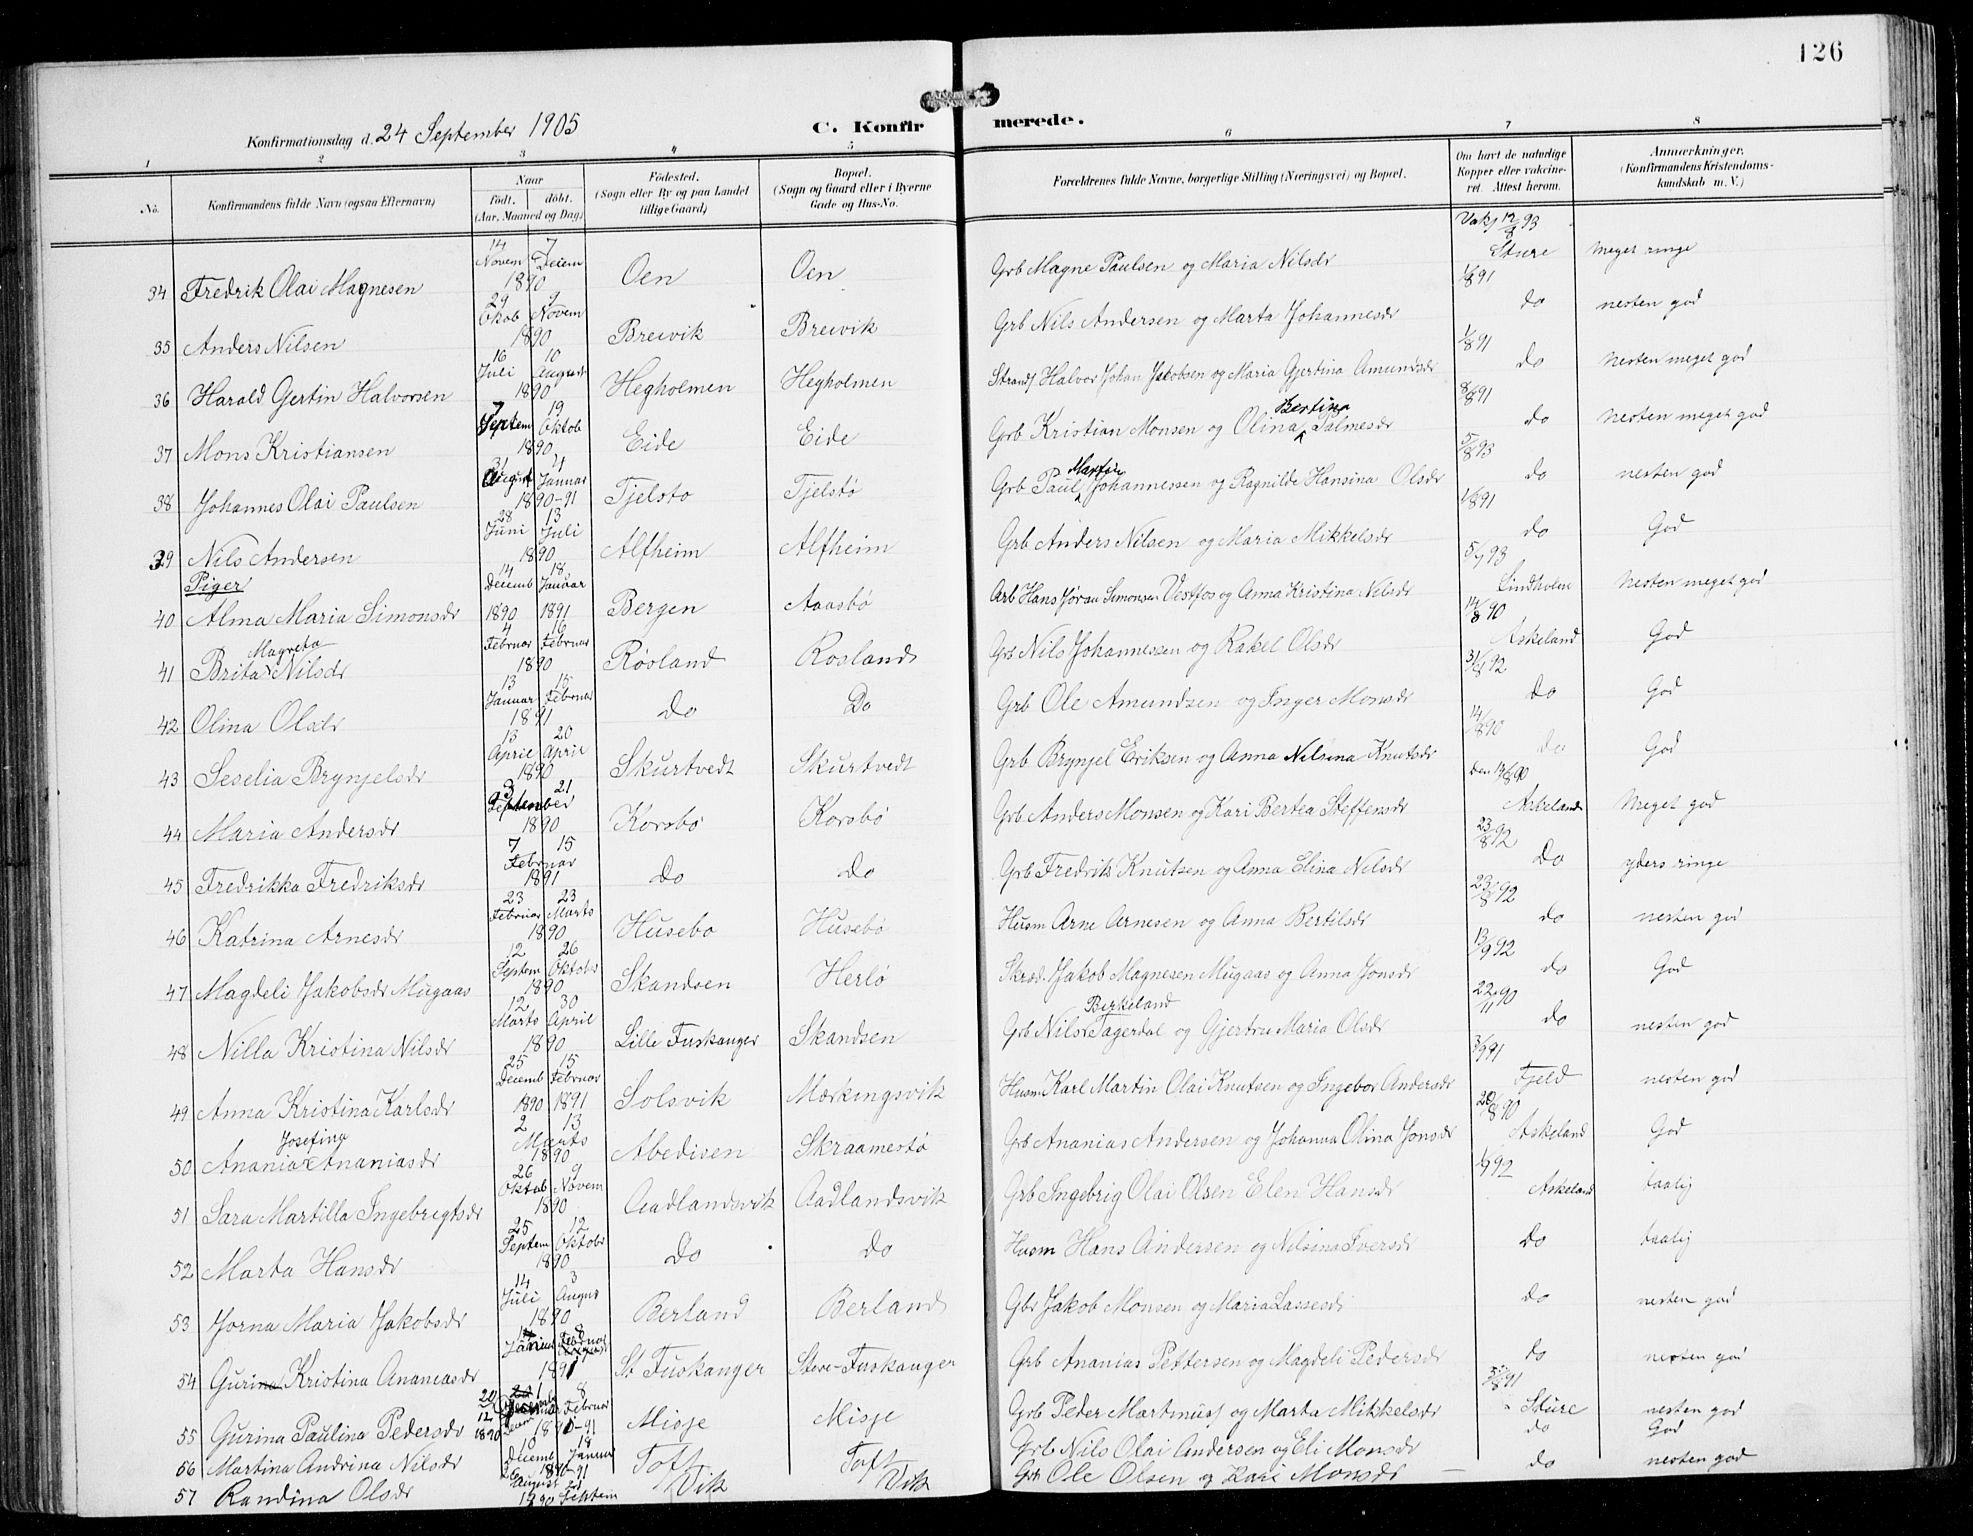 126
Konfirmationsdag d. 24 September 1905
C. Konfirmerede.
1 2 3 4 5 6 7 8
No. Konfirmandens fulde Navn (ogsaa Efternavn) Naar født. døbt. (Aar, Maaned og Dag) Fødested. (Sogn eller By og paa Landet tillige Gaard) Bopæl. (Sogn og Gaard eller i Byerne Gade og Hus-No. Forældrenes fulde Navne, borgerlige Stilling (Næringsvei) og Bopæl. Om havt de naturlige Kopper eller vakcineret. Attest herom. Anmærkninger, (Konfirmandens Kristendomskundskab m. V.)
34 Fredrik Olai Magnesen 14 Novem 7 Decem 1890 Oen Oen Grb Magne Paulsen og Maria Nilsdr Vaks 12/8 93 Sture meget ringe
35 Anders Nilsen 29 Okob 9 Novem 1890 Breivik Breivik Grb Nils Andersen og Marta Johannesdr 1/8 91 do nesten god
36 Harald Gertin Halvorsen 16 Juli 10 August 1890 Hegholmen Hegholmen Strands Halvor Johan Jakobsen og Maria Gjertina Amundsdr 1/8 91 do nesten meget god
37 Mons Kristiansen 7 Septem 19 Oktob 1890 Eide Eide Grb Kristian Monsen og Olina Bertina Salmesdr 8/8 91 do nesten meget god
38 Johannes Olai Paulsen 31 August 4 Januar 1890-91 Tjelsto Tjelstø Grb Paul Martin Johannessen og Ragnilde Hansina Olsdr 5/8 93 do nesten god
39 Nils Andersen 28 Juni 13 Juli 1890 Alfheim Alfheim Grb Anders Nilsen og Maria Mikkelsdr 1/8 91 do God
Piger
40 Alma Maria Simonsdr 14 Decemb 1890 18 Januar 1891 Bergen Aaasbø Arb Hans Jøran Simonsen Vestfos og Anna Kristina Nilsdr 5/7 93 Lindholm Nesten meget god
41 Brita Magreta Nilsdr 4 Februar 16 Februar 1890 Røsland Rosland Grb Nils Johannessen og Rakel Olsdr 14/8 90 Askeland God
42 Olina Olsdr 13 Januar 15 Februar 1891 Do Do Grb Ole Amundsen og Inger Monsdr 92 do God
43 Seselia Brynjelsdr 13 April 20 April 1890 Skurtvedt Skurtvedt Grb Brynjel Eriksen og Anna Nilsina Knutsdr 14/8 90 do God
44 Maria Andersdr 3 21 September 1890 Korsbø Korsbø Grb Anders Monsen og Kari Bertea Steffensdr Den 14/8 90 Askeland Meget god
45 Fredrikka Fredriksdr 7 15 Februar 1891 do do Grb Fredrik Knutsen og Anna Elina Nilsdr 23/8 92 Do yders ringe
46 Katrina Arnesdr 23 Februar 23 Marts 1890 Husebo Husebø Husm Arne Arnesen og Anna Bertilsdr 23/8 92 do nesten god
47 Magdeli Jakobsdr Mugaas 12 Septem 26 Oktober 1890 Skandsen Herlø Skræd. Jakob Magnesen Mugaas og Anna Jonsdr 13/9 92 do God
48 Nilla Kristina Nilsdr 12 Marts 30 April 1890 Lille Fuskanger Skandsen Grb Nils Birkeland Tagerdal og Gjertru Maria Olsdr 22/11 90 do nesten god
49 Anna Kristina Karlsdr 25 Decemb 1890 15 Februar 1891 Solsvik Mærkingsvik Husm Karl Martin Olai Knutsen og Ingebor Andersdr 3/9 91 Fjeld nesten god
50 Anania Josefina Ananiasdr 2 13 Marts 1890 Abedisen Skraamestø Grb Ananias Andersen og Johanna Olina Jonsdr 20/8 90 Askeland God
51 Sara Martilla Ingebregtsdr 26 Oktob 9 Novem 1890 Aadlandsvik Aadlandsvik Grb Ingebrig Olai Olsen Elen Hansdr 92 Askeland taalig
52 Marta Hansdr 25 Septem 12 Oktobr 1890 Do do Husm Hans Andersen og Nilsina Iversdr Do taalig
53 Jorna Maria Jakobsdr 14 Juli 3 Augus 1890 Berland Berland Gbr Jakob Monsen og Maria Lassesd do nesten god
54 Gurina Kristina Ananiasdr 8 Februar 1891 St Fuskanger Store-Fuskanger Grb Ananias Pettersen og Magdeli Pedersdr do nesten god
55 Gurina Paulina Pedersdr 12 1890 8 Februar 1890-91 Misje Misje Grb Peder Martinuss og Marta Mikkelsdr 5/8 91 Sture nesten god
56 Martina Andrina Nilsdr 10 Decemb 18 Januar 1890-91 Toft Toft Grb Nils Olai Andersen og Eli Monsdr do God
57 Randina Olsdr August 21 Septem 1890 Vik Vik Grb Ole Olsen og Kari Monsdr do nesten god